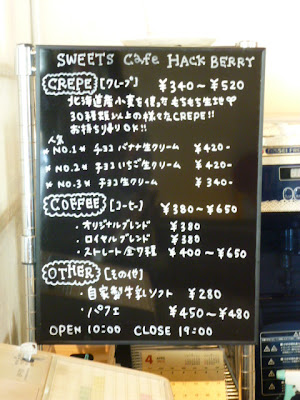 SWEETS Cafe HACK BERRY
CREPE [クレープ] ¥340～¥520
北海道産小麦を使ったもちもち生地
30種類以上の様々なCREPE!!
お持ち帰りOK!!
人気
*NO.1* チョコバナナ生クリーム ¥420-
*NO.2* チョコいちご生クリーム ¥420-
*NO.3* チョコ生クリーム ¥340-
COFFEE [コーヒー] ¥380～¥650
・オリジナルブレンド ¥380
・ロイヤルブレンド ¥380
・ストレート全7種 ¥400～¥650
OTHER [その他]
・自家製牛乳ソフト ¥280
・パフェ ¥450～¥480
OPEN 10:00 CLOSE 19:00
4